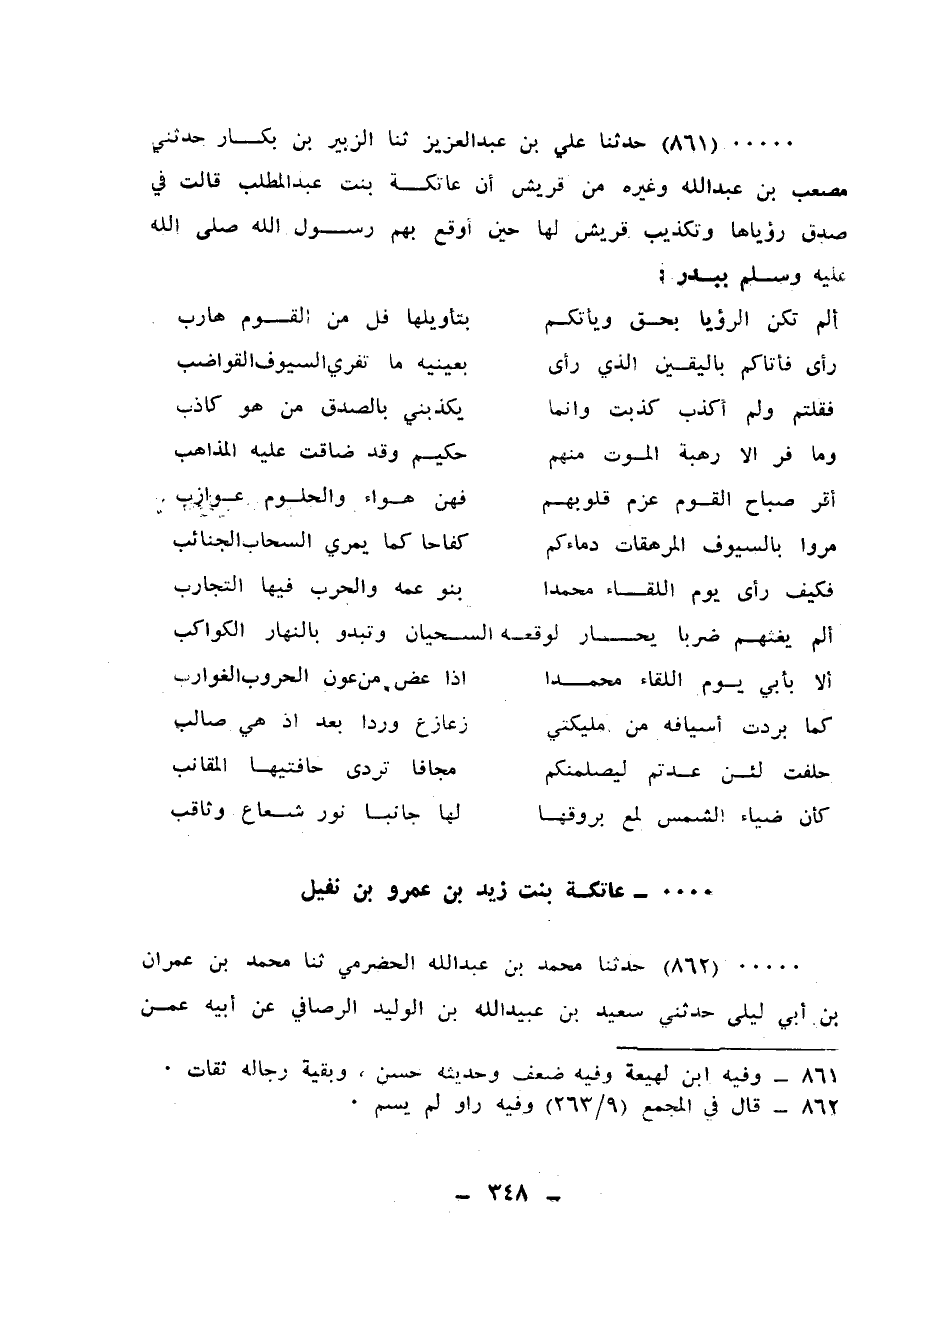 ٠٠٠٠٠ (٨٦١) حدثنا علي بن عبدالعزيز ثنا الزبير بن بكــار حدثني
مصعب بن عبدالله وغيره من قريش أن عاتكــة بنت عبدالمطلب قالت في
صدق رؤياها وتكذيب قريش لها حين أوقع بهم رســول الله صلى الله
عليه وســلم ببــدر :
ألم تكن الرؤيا بحــق ويأتكــم بتأويلها فل من القــوم هارب
رأى فأتاكم باليقــين الذي رأى بعينيه ما تفري السيوف القواضب
فقلتم ولم أكذب كذبت وانما يكذبني بالصدق من هو كاذب
وما فر الا رهبة المــوت منهم حكيــم وقد ضاقت عليه المذاهب
أقر صباح القــوم عزم قلوبهــم فهن هــواء والحلــوم عــوازب
مروا بالسيوف المرهقات دماءكم كفاحا كما يمري السحاب الجنائب
فكيف رأى يوم اللقــاء محمدا بنو عمه والحرب فيها التجارب
ألم يغنهــم ضربا يحــار لوقعــه الســحيان وتبدو بالنهار الكواكب
ألا بأبي يــوم اللقاء محمــدا اذا عض من عون الحروب الغوارب
كما بردت أسيافه من مليكتي زعازع وردا بعد اذ هي صالب
حلفت لئــن عــدتم ليصلمنكم مجافا تردى حافتيهــا المقانب
كأن ضياء الشمس لمع بروقهــا لها جانبــا نور شــعاع وثاقب
٠٠٠٠ ــ عاتكــة بنت زيد بن عمرو بن نفيل
٠٠٠٠٠ (٨٦٢) حدثنا محمد بن عبدالله الحضرمي ثنا محمد بن عمران
بن أبي ليلى حدثني سعيد بن عبيدالله بن الوليد الرصافي عن أبيه عمــن
٨٦١ ــ وفيه ابن لهيعة وفيه ضعف وحديثه حسن ، وبقية رجاله ثقات ٠
٨٦٢ ــ قال في المجمع (٢٦٣/٩) وفيه راو لم يسم ٠
ــ ٣٤٨ ــ